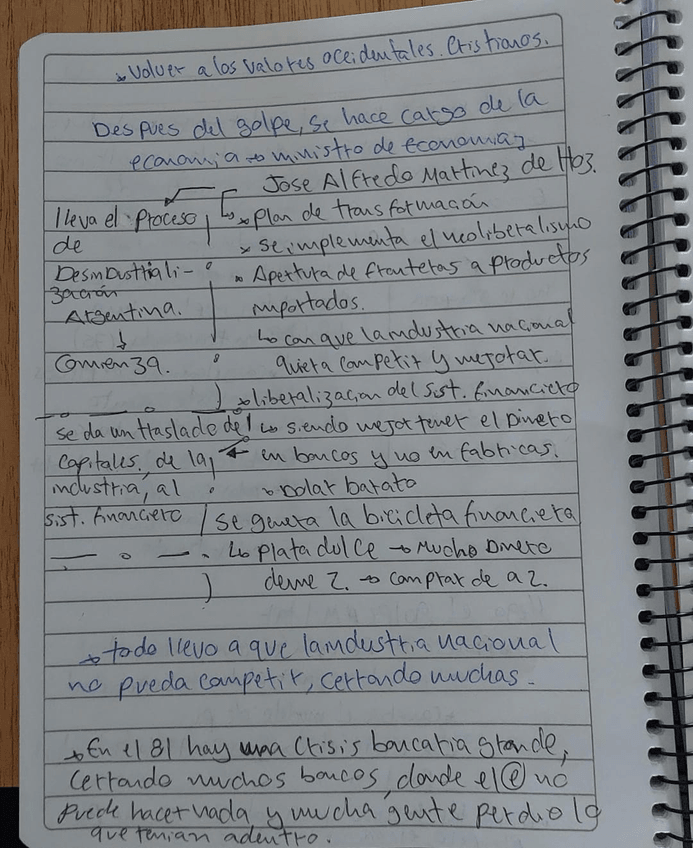 → Volver a los valores occidentales. Cristianos.
Despues del golpe, se hace cargo de la
economia → ministro de economia,
Jose Alfredo Martinez de Hoz.
lleva el proceso
de
Desindustriali-
zación
Argentina.
↓
Comienza.
↳ * Plan de transformación
* Se implementa el neoliberalismo
* Apertura de fronteras a productos
importados.
↳ con que la industria nacional
quiera competir y mejorar.
→ liberalizacion del Sist. financiero
↳ siendo mejor tener el Dinero
en bancos y no en fabricas.
→ Dolar barato
se da un traslado del
Capitales, de la
industria, al
sist. financiero
se genera la bicicleta financiera
↳ plata dulce → Mucho Dinero
deme 2. → comprar de a 2.
→ todo llevo a que la industria nacional
no pueda competir, cerrando muchas.
→ En el 81 hay una Crisis bancaria grande,
cerrando muchos bancos, donde el @ no
Puede hacer nada y mucha gente perdio lo
que tenian adentro.